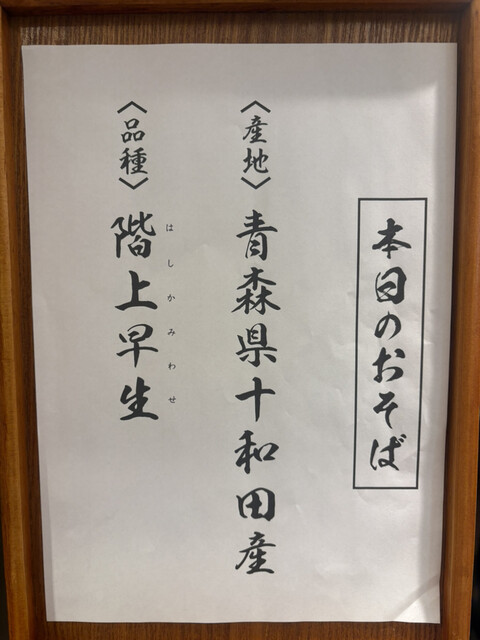 本日のおそば
〈産地〉 青森県十和田産
〈品種〉 階上早生
はしかみわせ